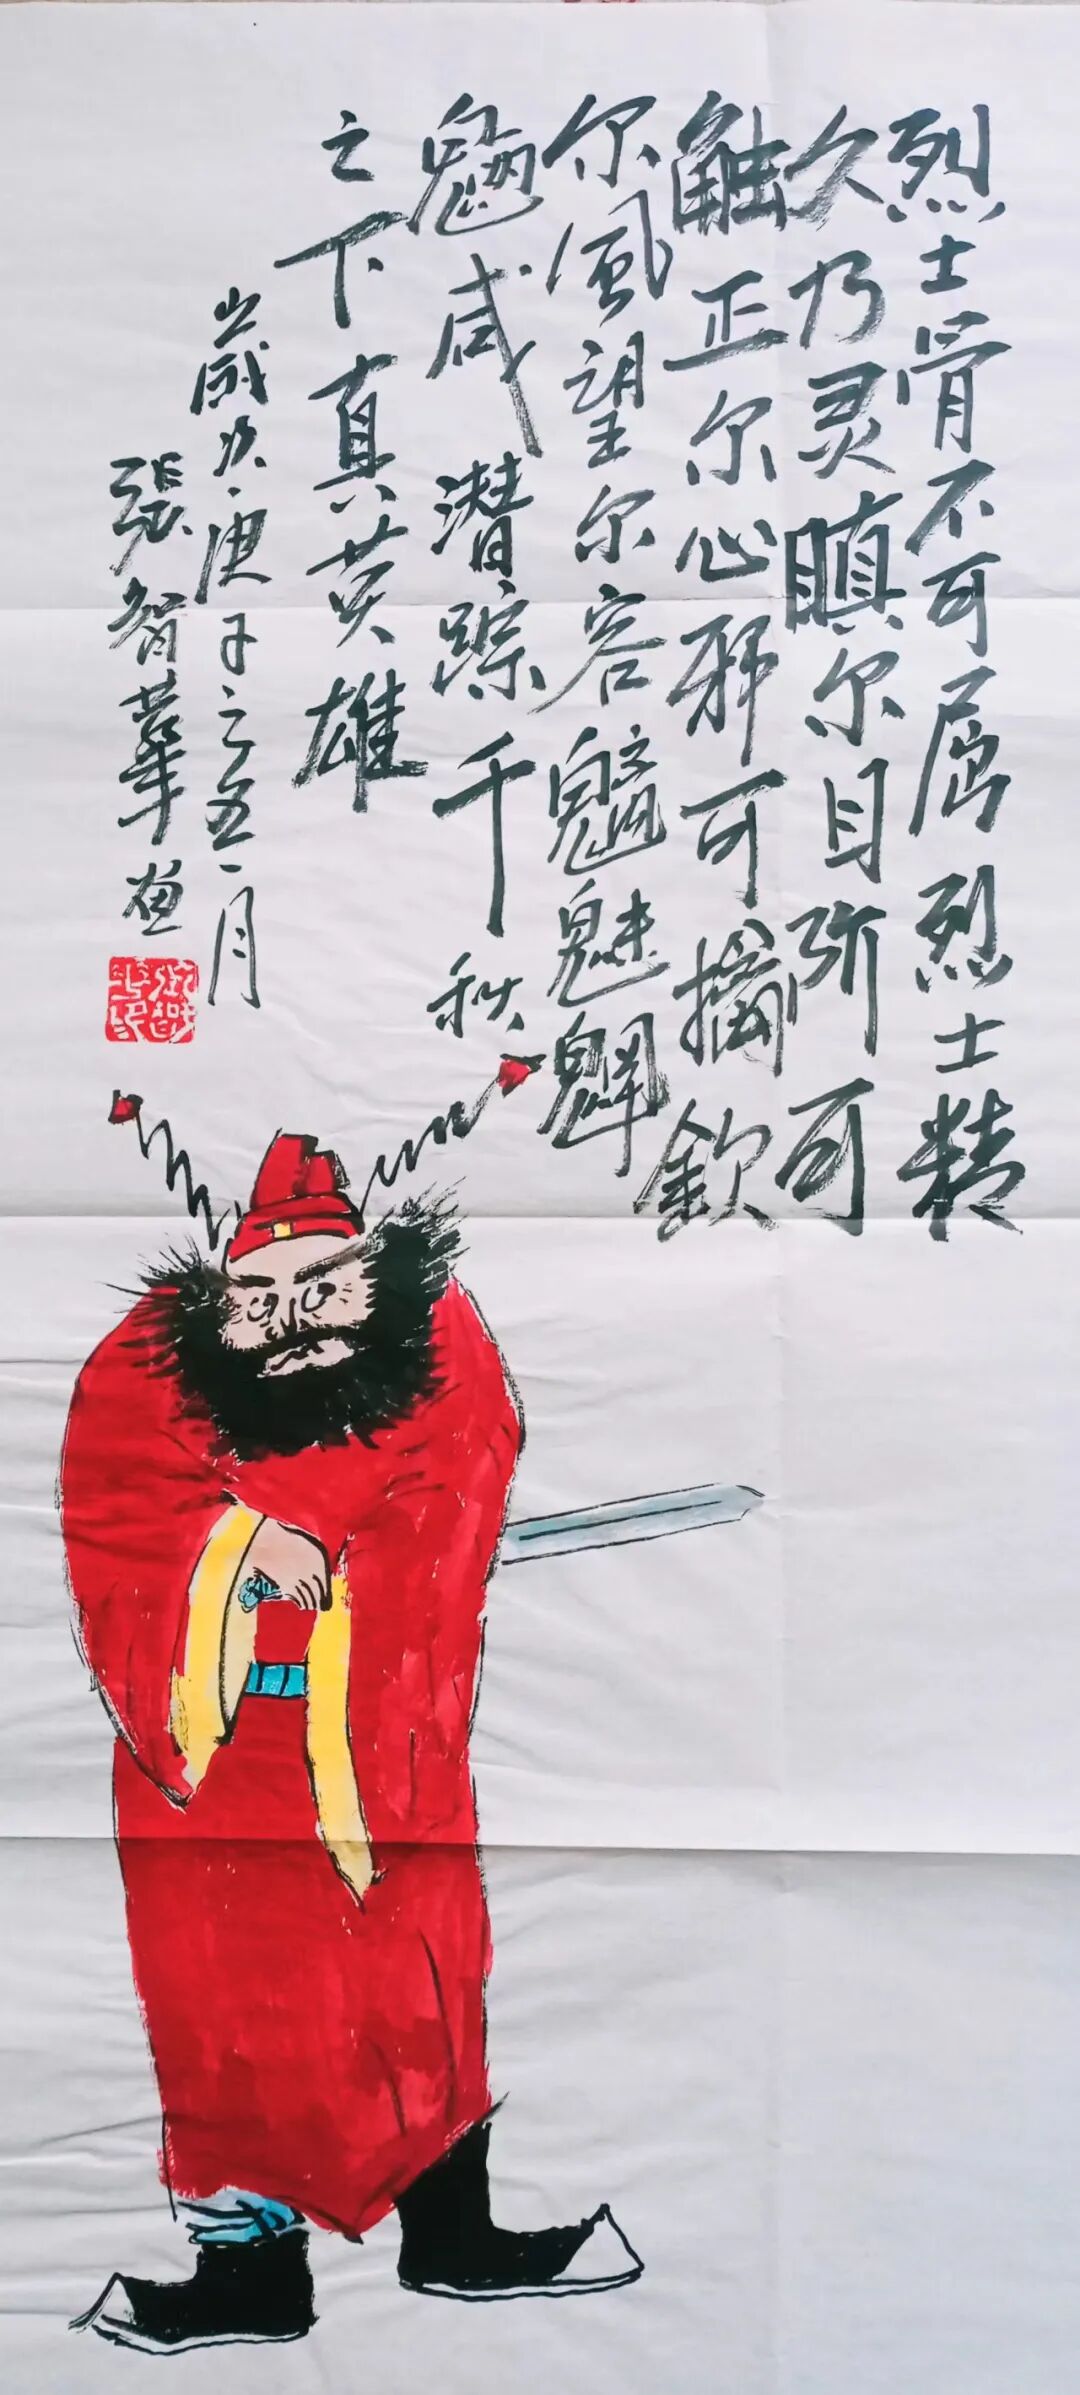 烈士骨不可屈烈士精
久乃灵瞋尔目所可
触正尔心邪可擒钦
尔风望尔容魑魅魍
魉咸潜踪千秋
之下真英雄
岁次庚子之五月
張智華画